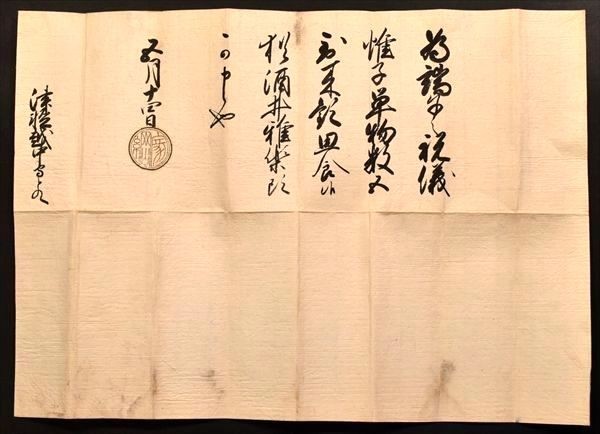 為端午祝儀
帷子単物数五
到来歓思食候
猶酒井雅楽頭
可申也
五月十四日
津軽越中守とのへ